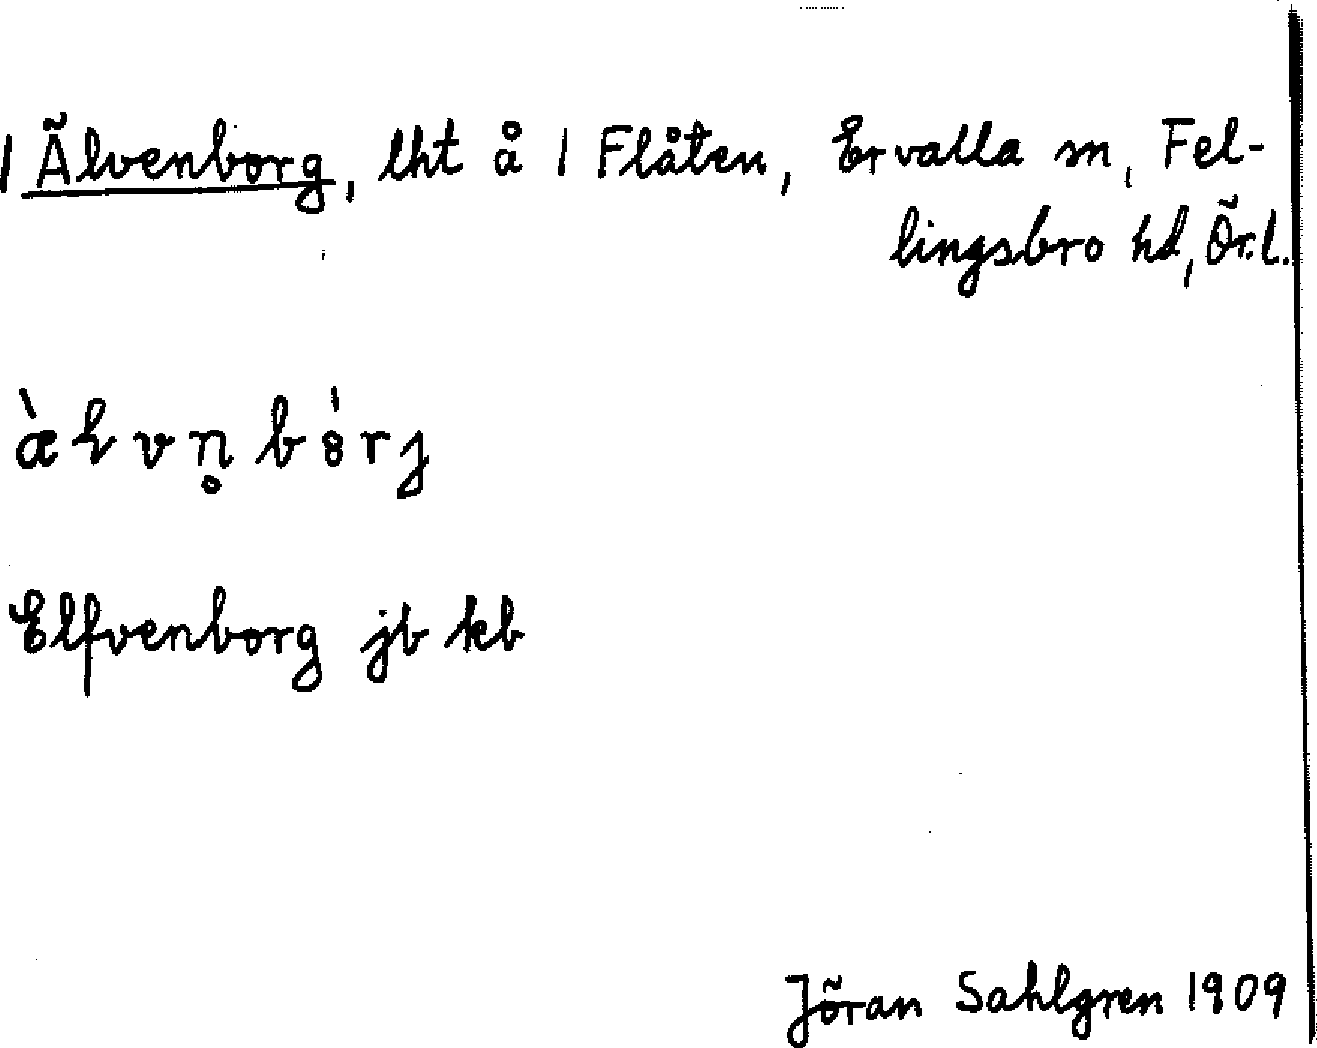 | Älvenborg, lht å | Flåten, Ervalla sn, Fel-
lingsbro hd, Ör.l.
Elfvenborg jb kb
Jöran Sahlgren 1909